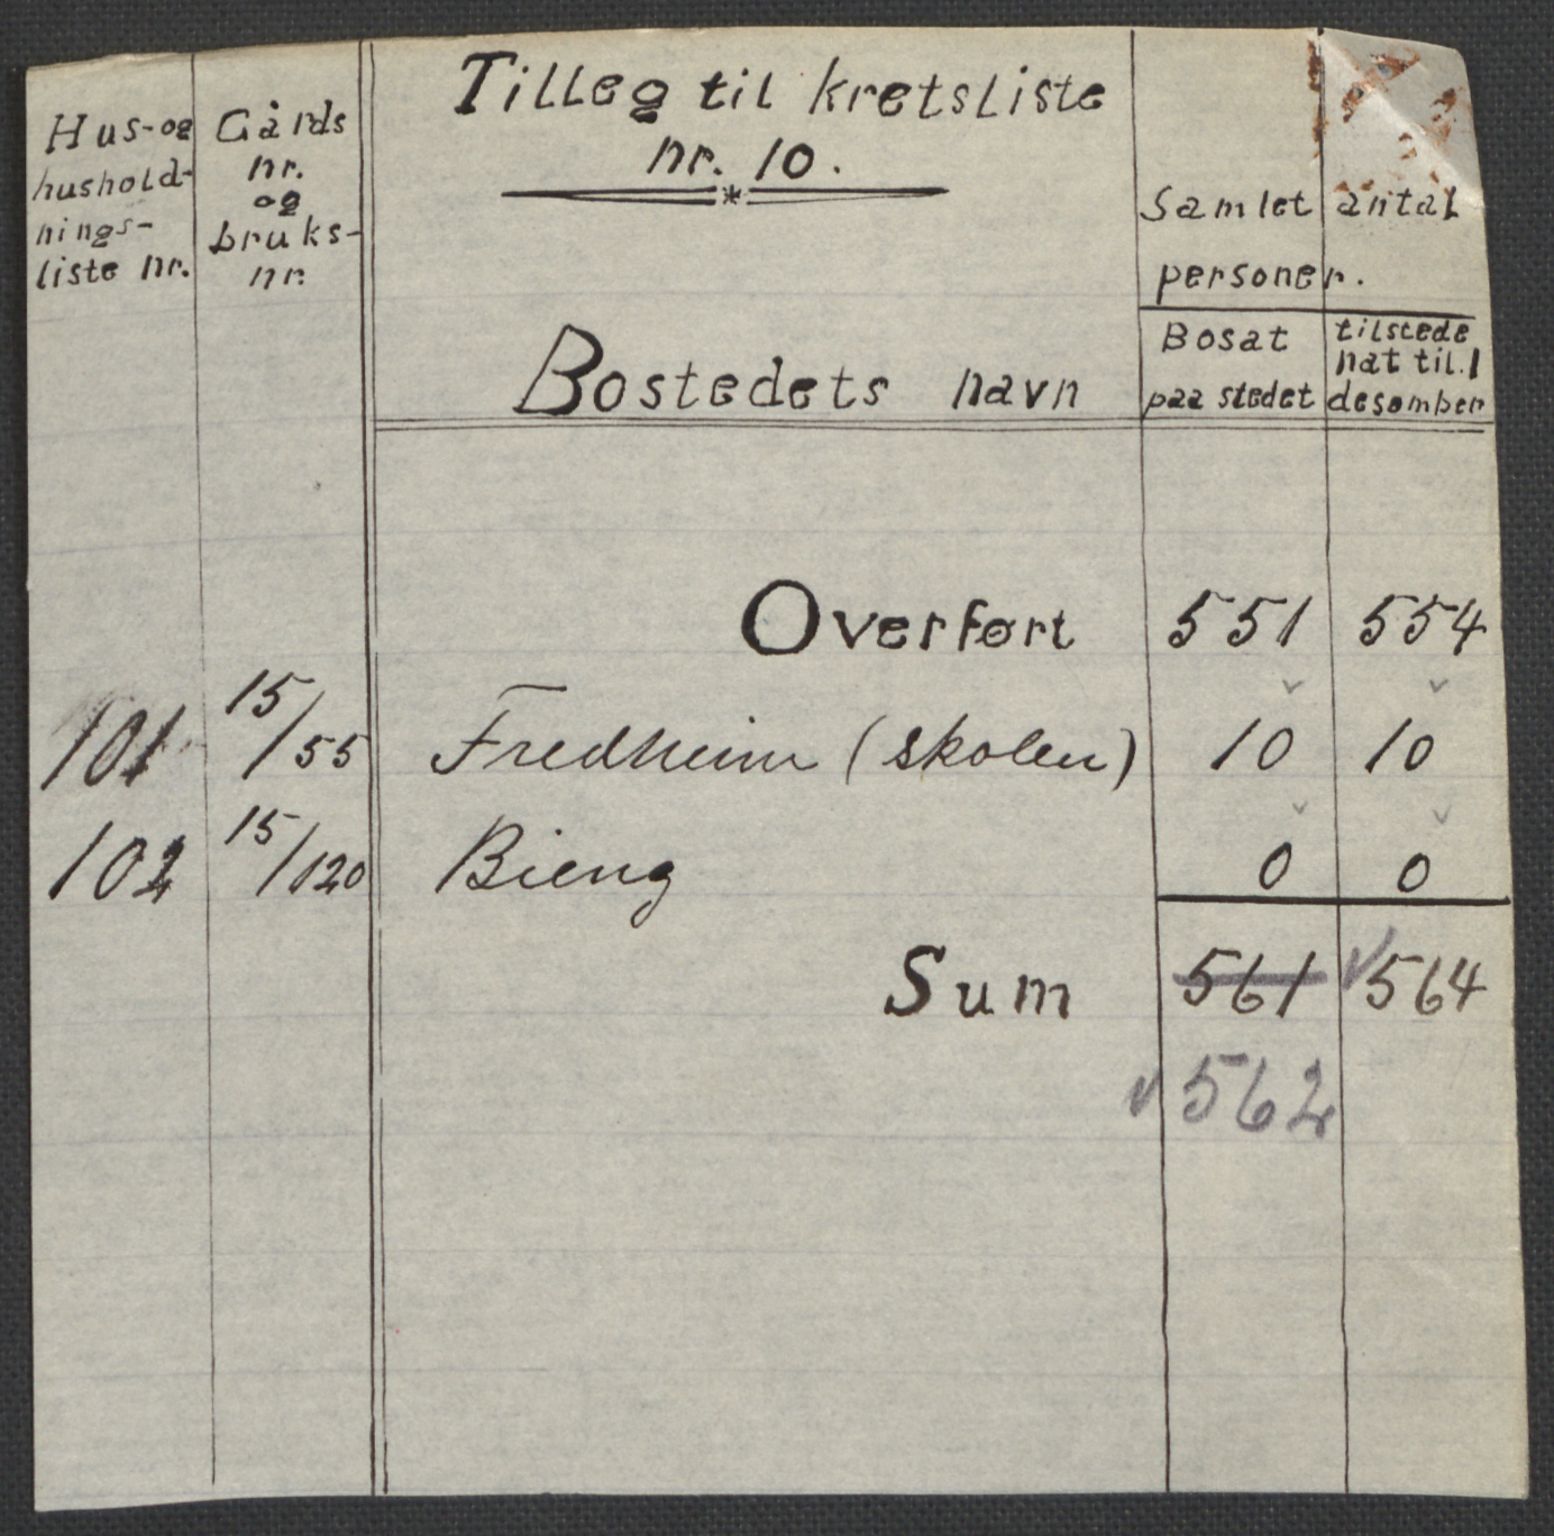 Tilleg til kretsliste
nr. 10.
Hus- og
hushold-
nings-
liste nr.
Gårds
nr.
og
bruks-
nr.
Bostedets navn
Samlet antal
personer.
Bosat
paa stedet
tilstede
nat til 1
desember
Overført 551 554
101 15/55 Fredheim (skolen) 10 10
102 15/120 Bieng 0 0
Sum 561 564
562